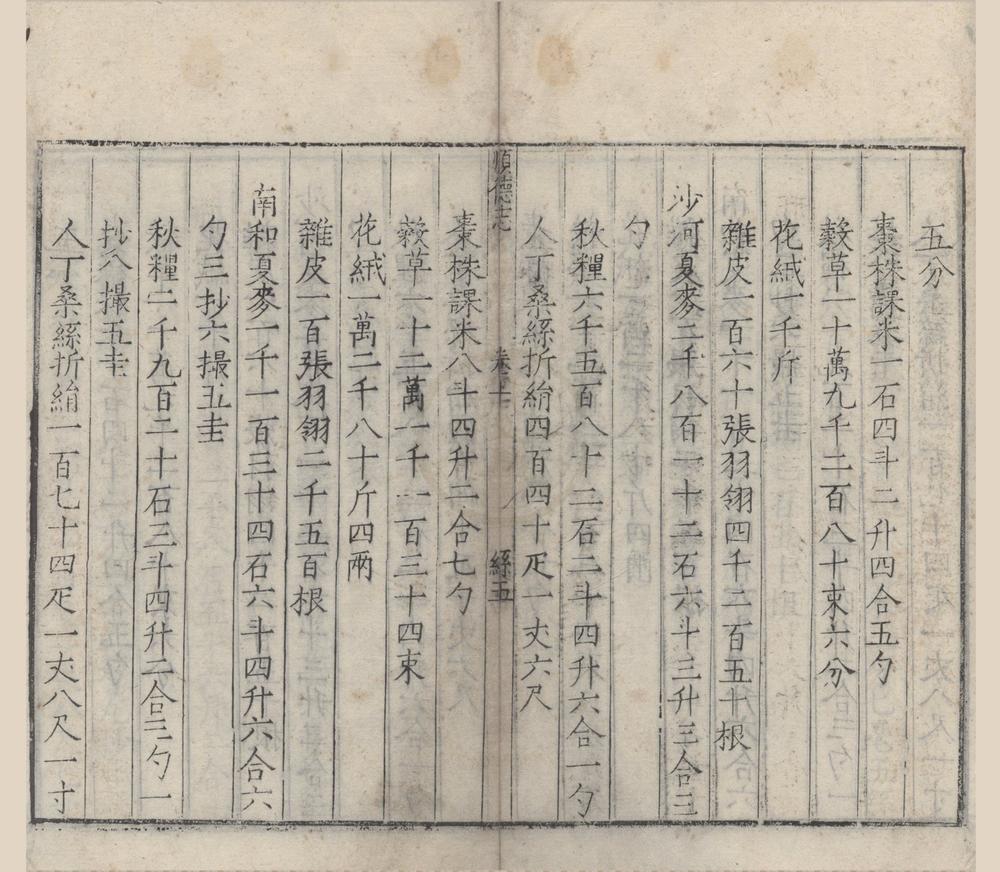 五分
棗株課米一石四斗二升四合五勺
穀草一十萬九千二百八十束六分
花絨一千斤
雜皮一百六十張羽翎四千二百五十根
沙河夏麥二千八百一十二石六斗三升三合三
勺
秋糧六千五百八十二石二斗四升六合一勺
人丁桑絲折絹四百四十疋一丈六尺
順德志
絲五
棗株課米八斗四升二合七勺
穀草一十二萬一千一百三十四束
花絨一萬二千八十斤四兩
雜皮一百張羽翎二千五百根
南和夏麥一千一百三十四石六斗四升六合六
勺三抄六撮五圭
秋糧二千九百二十石三斗四升二合三勺一
抄八撮五圭
人丁桑絲折絹一百七十四疋一丈八尺一寸